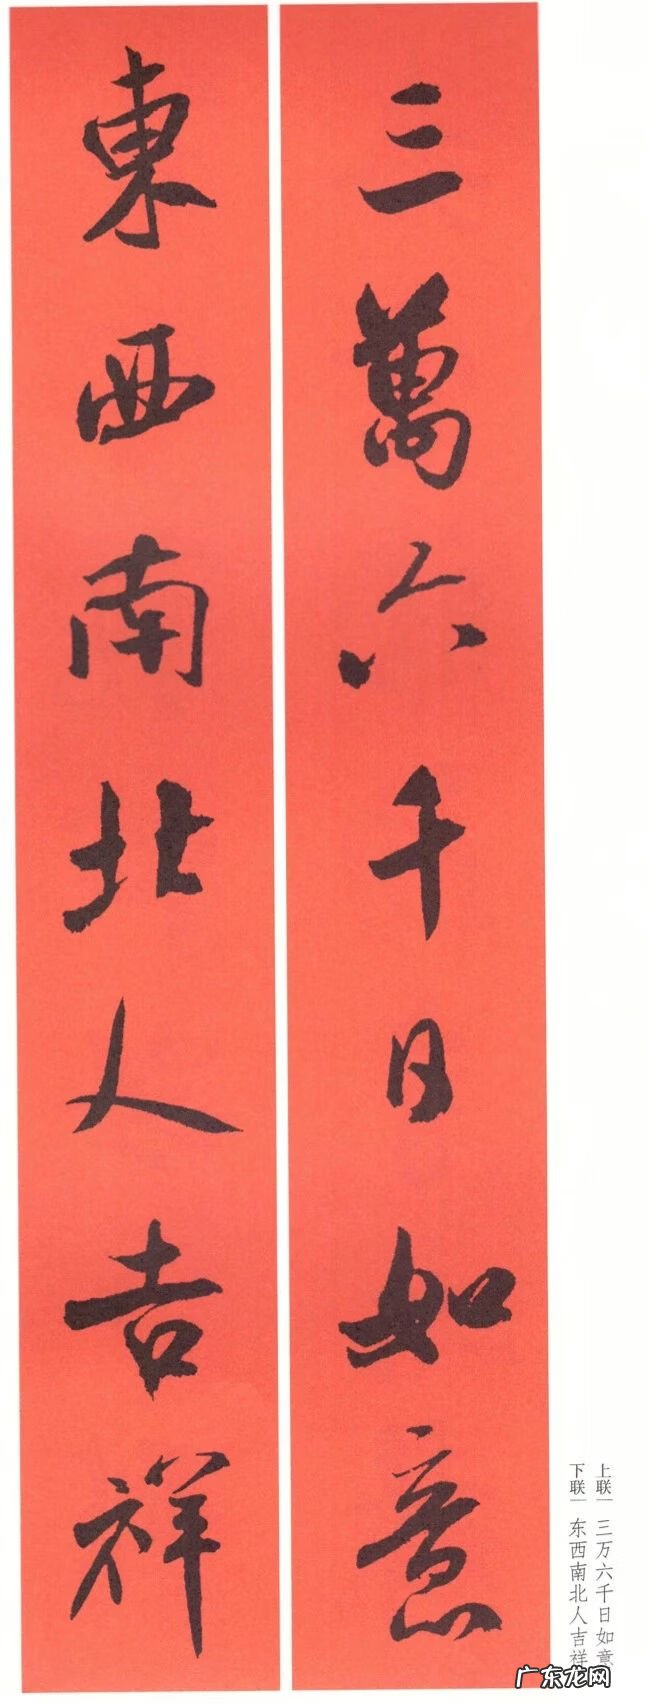 三萬六千日如意
東西南北人吉祥
上联｜三万六千日如意
下联｜东西南北人吉祥
广东龙网